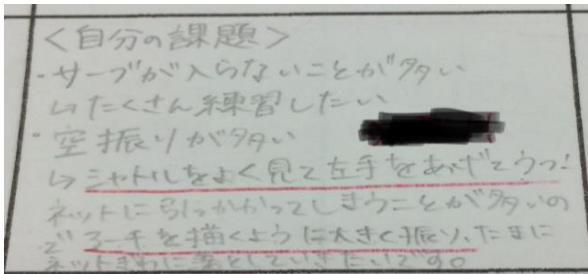 <自分の課題>
・サーブが入らないことが多い
↳たくさん練習したい
・空振りが多い
↳シャトルをよく見て左手をあげてうつ!
ネットに引っかかってしまうことが多いの
で アーチを描くように大きく振り、たまに
ネットぎわに落としていきたいです。